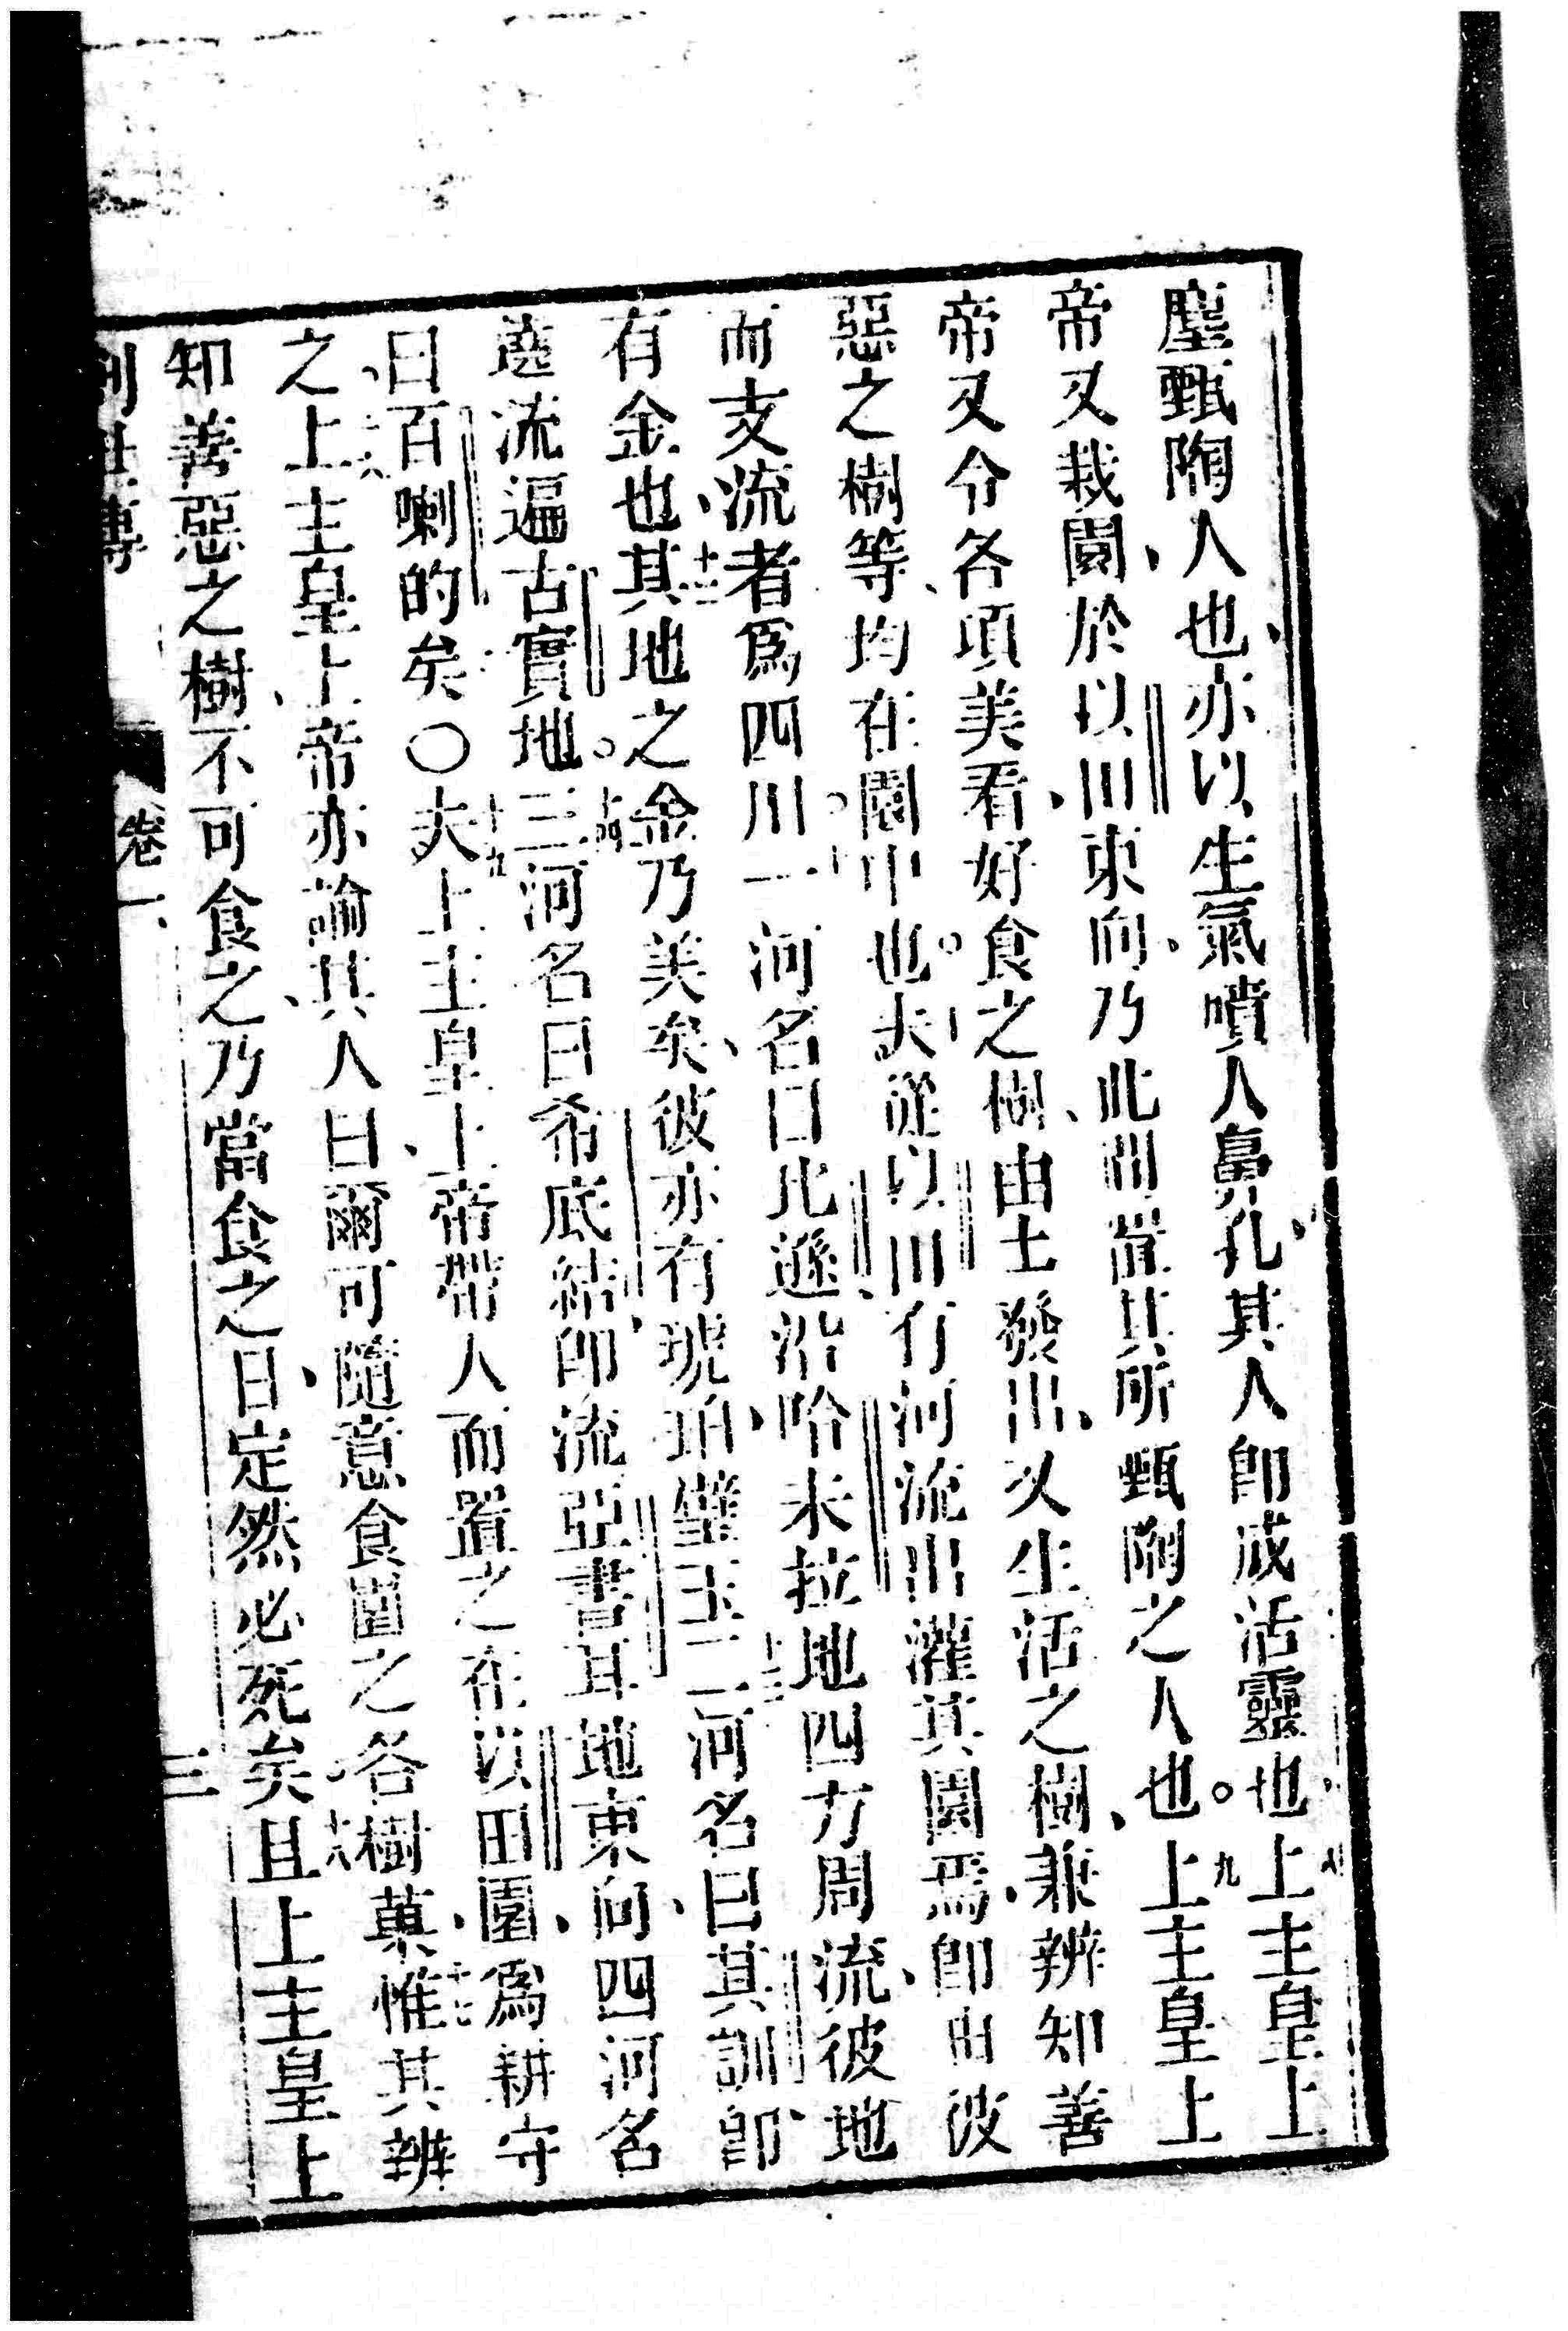 塵甄陶人也、亦以生氣噴人鼻孔、其人即成活靈也、八上主皇上
帝又栽園、於以田東向、乃此田置其所甄陶之人也。九上主皇上
帝又令各項美看、好食之樹、由土發出、又生活之樹、兼辨知善
惡之樹等、均在園中也。十夫從以田有河流出灌其園焉、即由彼
而支流者爲四川。十一一河名曰比遜、沿哈未拉地四方周流、彼地
有金也、十二其地之金乃美矣、彼亦有琥珀、璧玉。十三二河名曰其訓、即
遶流逼古實地。十四三河名曰希底結、即流亞書耳地東向、四河名
曰百喇的矣。〇十五夫上主皇上帝帶人而置之在以田園、爲耕守
之。十六上主皇上帝亦諭其人曰、爾可隨意食園之各樹菓、十七惟其辨
知善惡之樹、不可食之、乃當食之日、定然必死矣。十八且上主皇上
創世傳 卷一 三